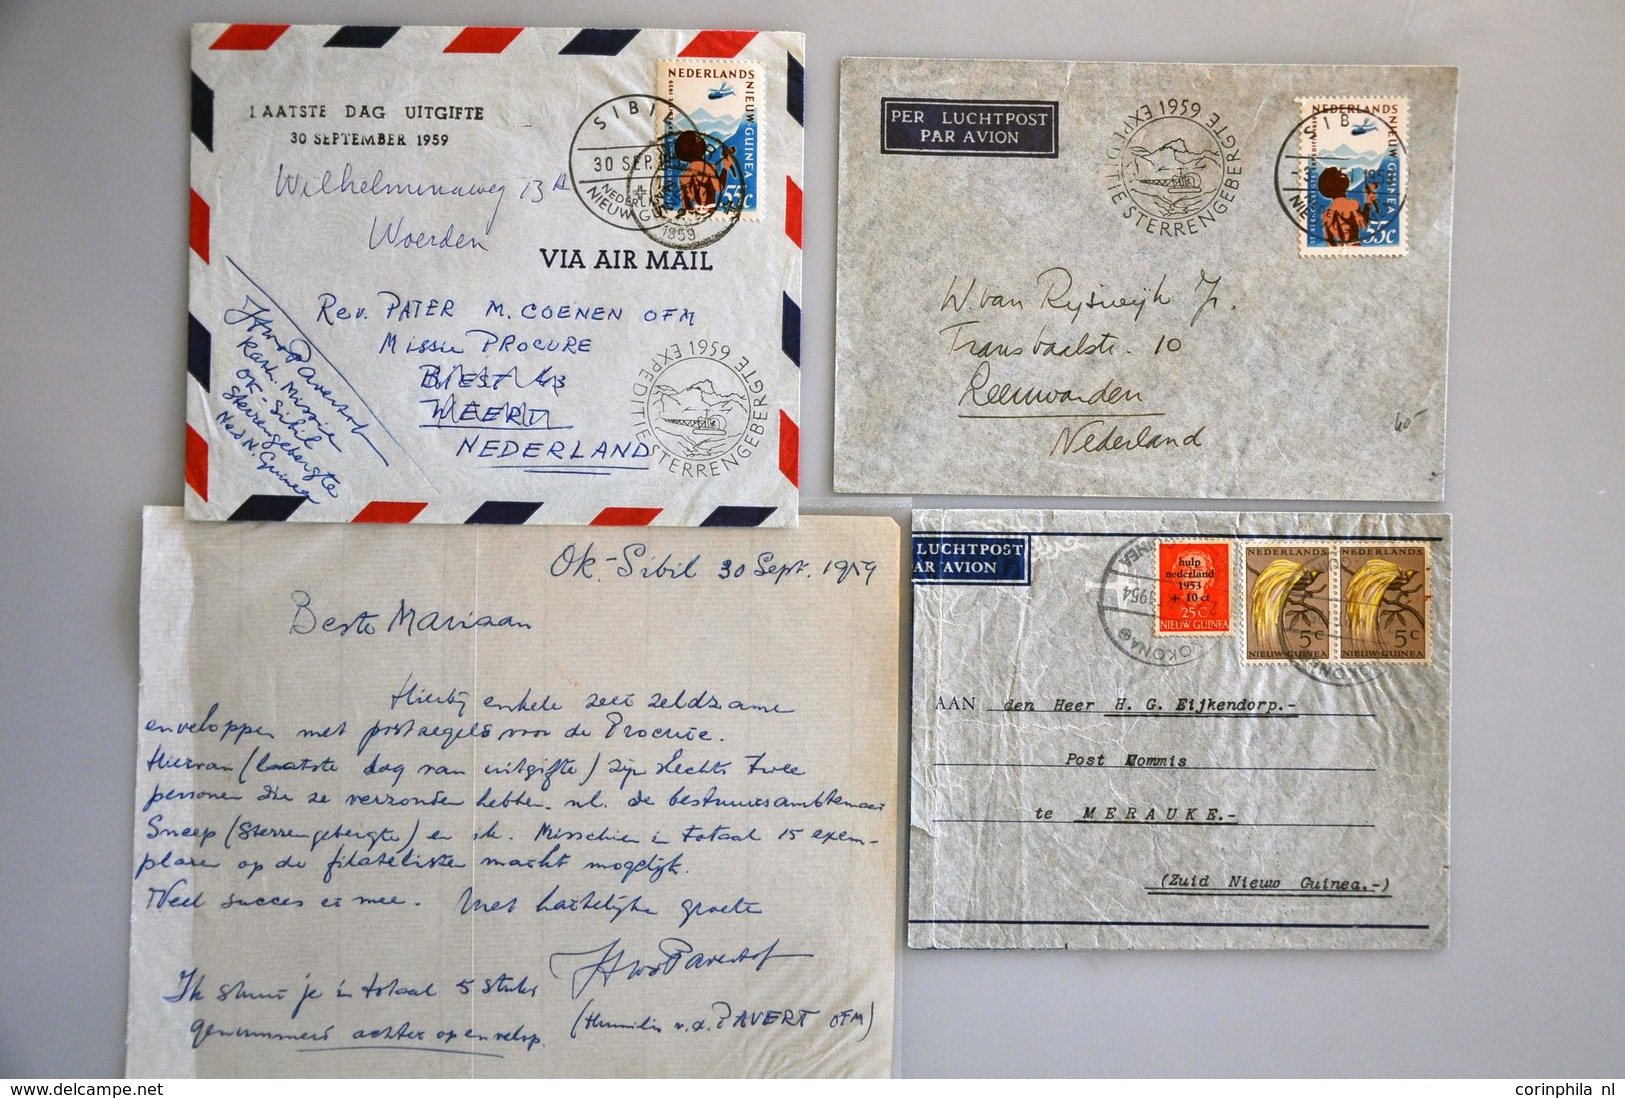 LAATSTE DAG UITGIFTE
30 SEPTEMBER 1959
Wilhelminaweg 13A
Woerden
NEDERLANDS
NIEUW-GUINEA
55c
SIBIL
30 SEP.
NIEUW GUINEA
1959
VIA AIR MAIL
Rev. PATER M. COENEN OFM
Missie PROCURE
BIEST 43
WEERT
NEDERLAND
EXPEDITIE STERRENGEBERGTE 1959
Kath. Missie
OK-Sibil
Sterrengebergte
Ned N. Guinea
PER LUCHTPOST
PAR AVION
EXPEDITIE STERRENGEBERGTE 1959
NEDERLANDS
NIEUW-GUINEA
55c
W. van Rijswijk Jr.
Transvaalstr. 10
Leeuwarden
Nederland
60-
Ok-Sibil 30 Sept. 1959
Beste Mariaan
Hierbij enkele zeer zeldzame
enveloppen met postzegels voor de Procure.
Hiervan (laatste dag van uitgifte) zijn slechts twee
personen die ze verzonden hebben. nl. de bestuursambtenaar
Sneep (Sterrengebergte) en ik. Misschien in totaal 15 exem-
plaren op de filatelistenmarkt mogelijk.
Veel succes er mee. Met hartelijke groeten
(Humilis v.d. PAVERT OFM)
Ik stuur je in totaal 5 stuks
genummerd achter op envelop.
LUCHTPOST
AR AVION
hulp
nederland
1953
+ 10 ct
25 C
NIEUW GUINEA
NEDERLANDS
5 C
NIEUW-GUINEA
NEDERLANDS
5 C
NIEUW-GUINEA
1954
AAN den Heer H. G. Eijkendorp.-
Post Mommis
te MERAUKE.-
(Zuid Nieuw Guinea.-)
corinphila nl